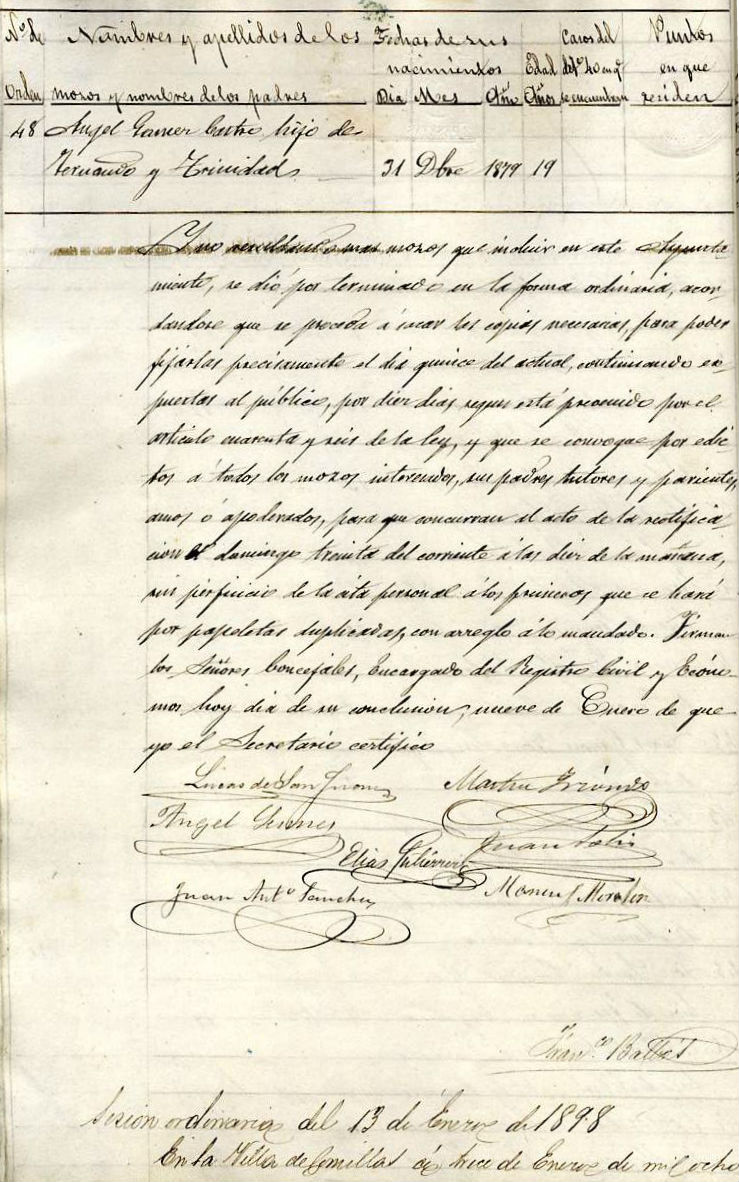 Nº de Nombres y apellidos de los Fechas de sus Casos del Puntos
nacimientos Edad del º 40 en q. en que
Orden mozos y nombres de los padres Dia Mes Año Años se encuentran residen
48 Angel Gomez Castro hijo de
Fernando y Trinidad 31 Dbre 1879 19
Y no resultando mas mozos que incluir en este Alistamiento,
se dió por terminado en la forma ordinaria, acor-
dandose que se proceda á sacar las copias necesarias, para poder
fijarlas precisamente el dia quince del actual, continuando ex-
puestas al público, por diez dias segun está prevenido por el
articulo cuarenta y seis de la ley, y que se convoque por edic-
tos a todos los mozos interesados, sus padres tutores y parientes,
amos ó apoderados, para que concurran al acto de la rectifica-
cion el domingo treinta del corriente á las diez de la mañana,
sin perjuicio de la cita personal á los primeros que se hará
por papeletas duplicadas, con arreglo á lo mandado. Firman
los Señores Concejales, Encargado del Registro Civil y Ecóno-
mos hoy dia de su conclusion, nueve de Enero de que
yo el Secretario certifico
Lucas de San Juan Martin
Angel
Elias Gutiérrez Juan
Juan Antº Sanchez Manuel
Franco
Sesión ordinaria del 13 de Enero de 1898
En la Villa de Comillas á trece de Enero de mil ocho